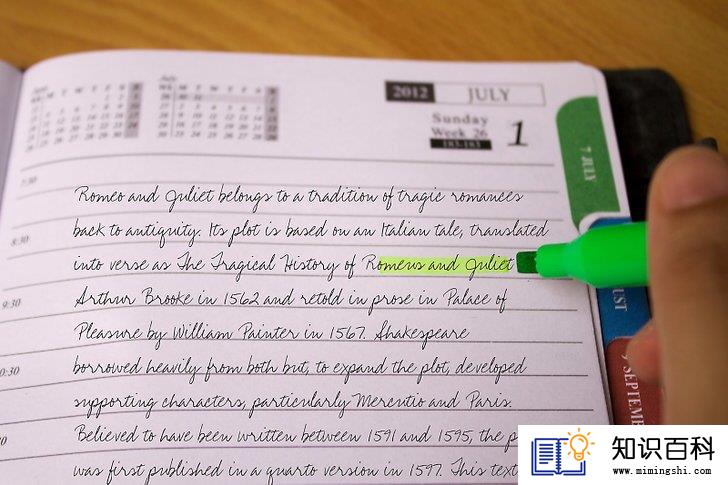 2012 JULY
Sunday
Week 26
1
183-183
7 JULY
7:30
Romeo and Juliet belongs to a tradition of tragic romances
back to antiquity. Its plot is based on an Italian tale, translated
8:30
into verse as The Tragical History of Romeus and Juliet
9:30
Arthur Brooke in 1562 and retold in prose in Palace of
Pleasure by William Painter in 1567. Shakespeare
borrowed heavily from both but, to expand the plot, developed
supporting characters, particularly Mercutio and Paris.
SEPTEM
Believed to have been written between 1591 and 1595, the
was first published in a quarto version in 1597. This text
知识百科
www.mimingshi.com